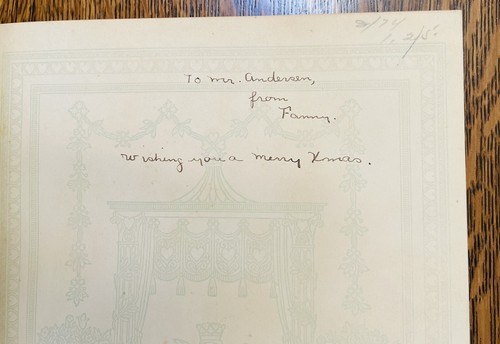 To Mr. Andersen,
from
Fanny.
Wishing you a Merry Xmas.